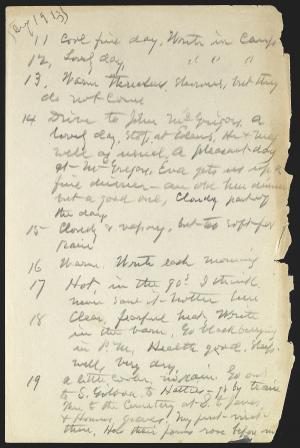 (Aug 1913)
11 Cool fine day, Write in Camp
12, Lovely day, " " "
13, Warm threatens showers, but they
do not come
14 Drive to John McGregors, A
lovely day, Stop at Edens, He & wife
well as usual, A pleasant day
at McGregors, Eva gets us up a
fine dinner – an old hen dinner
but a good one, Cloudy part of
the day
15 Cloudy & vapory, but too soft for
rain
16 Warm. Write each morning
17 Hot, in the 90s I think
never saw it hotter here
18 Clear, fearful heat, Write
in the barn, Go blackberrying
in P.M, Health good. Sleep
well, very dry,
19 A little cooler, no rain. Go out
to S. Gilboa, to Hatties – go by train
Then to the Cemetery at
& Homers graves, My first visit
there, How their forms rose before me